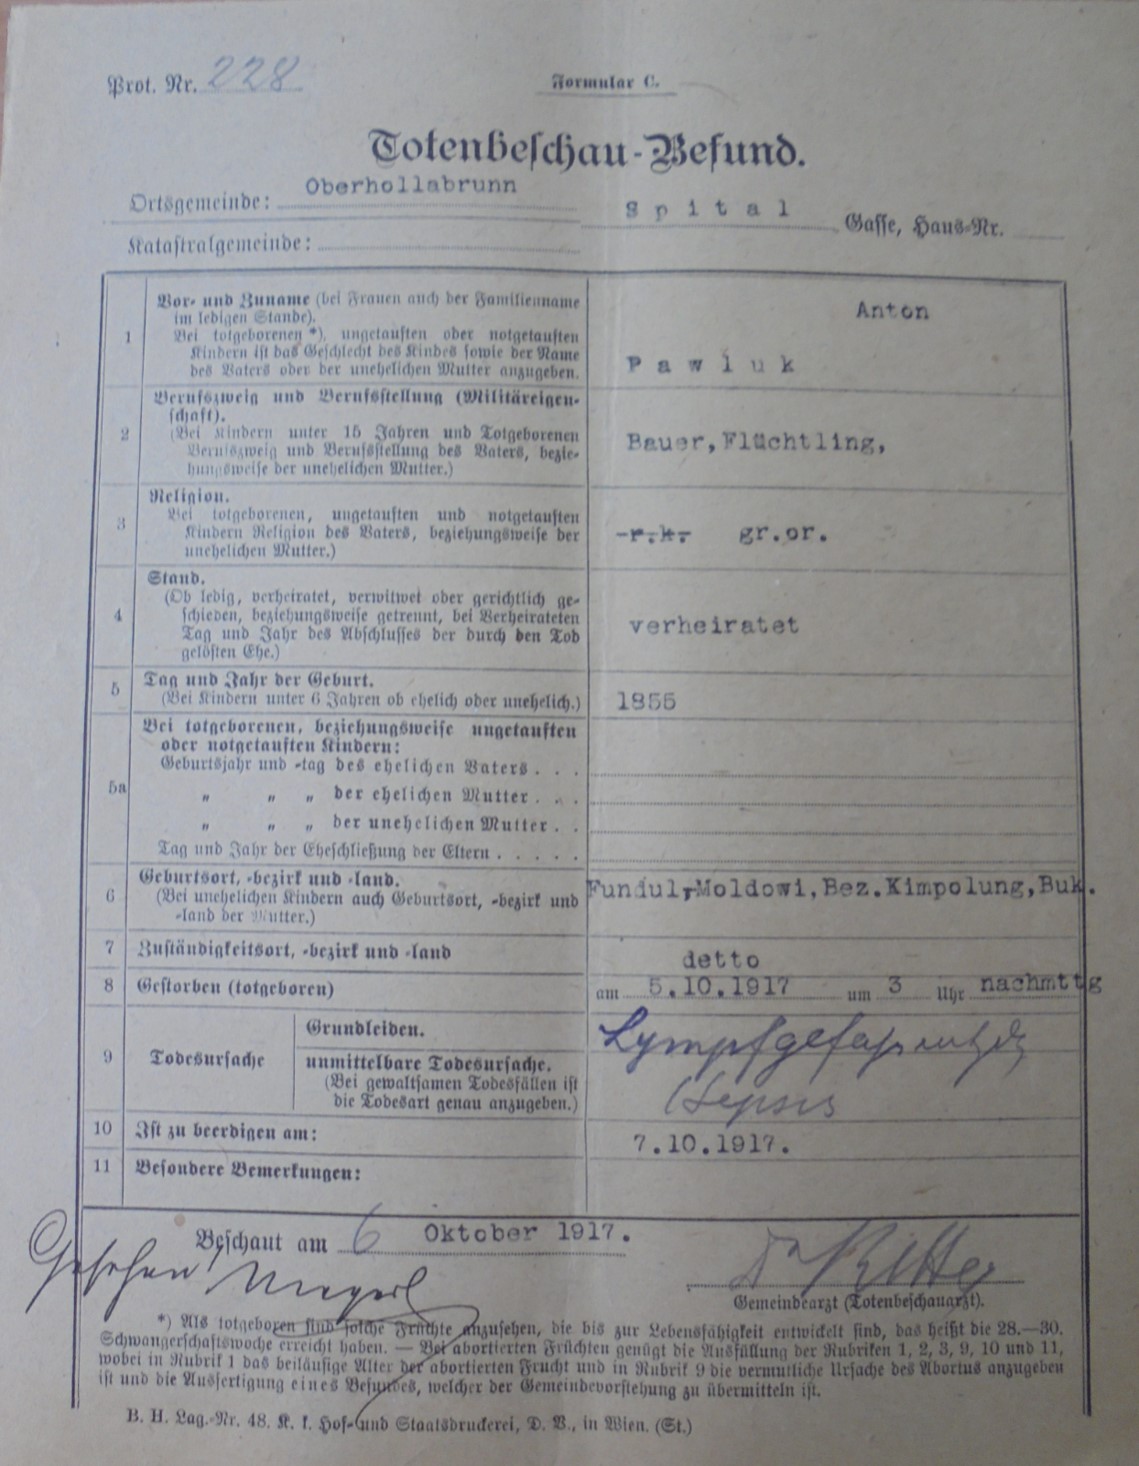 Prot. Nr. 228
Formular C.
Totenbeschau-Befund.
Ortsgemeinde: Oberhollabrunn
Spital Gasse, Haus-Nr.
Katastralgemeinde:
1 Vor- und Zuname (bei Frauen auch der Familienname
im ledigen Stande).
Bei totgeborenen *), ungetauften oder notgetauften
Kindern ist das Geschlecht des Kindes sowie der Name
des Vaters oder der unehelichen Mutter anzugeben.
Anton
Pawluk
2 Berufszweig und Berufsstellung (Militäreigen-
schaft).
(Bei Kindern unter 15 Jahren und Totgeborenen
Berufszweig und Berufsstellung des Vaters, bezie-
hungsweise der unehelichen Mutter.)
Bauer, Flüchtling,
3 Religion.
Bei totgeborenen, ungetauften und notgetauften
Kindern Religion des Vaters, beziehungsweise der
unehelichen Mutter.)
-r.k.- gr.or.
4 Stand.
(Ob ledig, verheiratet, verwitwet oder gerichtlich ge-
schieden, beziehungsweise getrennt, bei Verheirateten
Tag und Jahr des Abschlusses der durch den Tod
gelösten Ehe.)
verheiratet
5 Tag und Jahr der Geburt.
(Bei Kindern unter 6 Jahren ob ehelich oder unehelich.)
1855
5a Bei totgeborenen, beziehungsweise ungetauften
oder notgetauften Kindern:
Geburtsjahr und -tag des ehelichen Vaters . . .
" " " der ehelichen Mutter . . .
" " " der unehelichen Mutter . .
Tag und Jahr der Eheschließung der Eltern . . . . .
6 Geburtsort, -bezirk und -land.
(Bei unehelichen Kindern auch Geburtsort, -bezirk und
-land der Mutter.)
Fundul,-Moldowi, Bez. Kimpolung, Buk.
7 Zuständigkeitsort, -bezirk und -land
detto
8 Gestorben (totgeboren)
am 5.10.1917 um 3 Uhr nachmttg
9 Todesursache
Grundleiden.
Lympfgefäss
unmittelbare Todesursache.
(Bei gewaltsamen Todesfällen ist
die Todesart genau anzugeben.)
Sepsis
10 Ist zu beerdigen am:
7.10.1917.
11 Besondere Bemerkungen:
Beschaut am 6 Oktober 1917.
Gesehen
Dr Ritter
Gemeindearzt (Totenbeschauarzt).
*) Als totgeboren sind solche Früchte anzusehen, die bis zur Lebensfähigkeit entwickelt sind, das heißt die 28.—30.
Schwangerschaftswoche erreicht haben. — Bei abortierten Früchten genügt die Ausfüllung der Rubriken 1, 2, 3, 9, 10 und 11,
wobei in Rubrik 1 das beiläufige Alter der abortierten Frucht und in Rubrik 9 die vermutliche Ursache des Abortus anzugeben
ist und die Ausfertigung eines Befundes, welcher der Gemeindevorstehung zu übermitteln ist.
B. H. Lag.-Nr. 48. K. k. Hof- und Staatsdruckerei, D. V., in Wien. (St.)